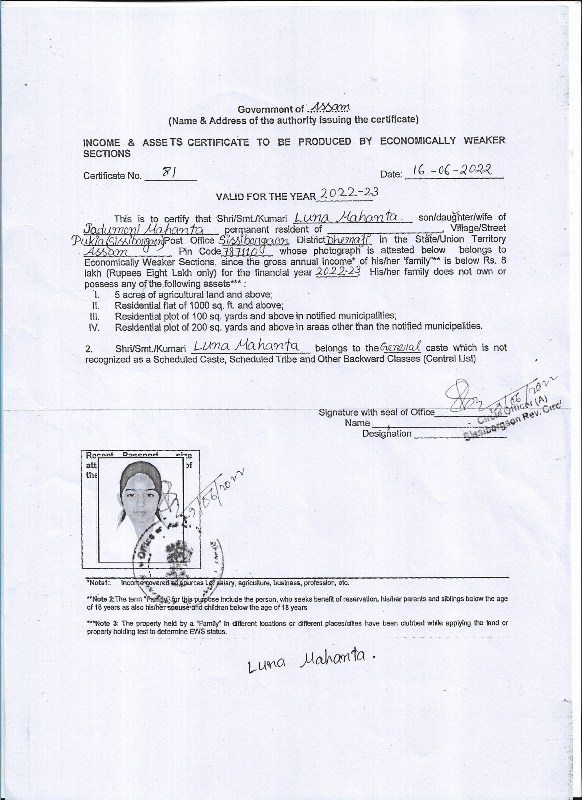 Government of Assam
(Name & Address of the authority issuing the certificate)
INCOME & ASSETS CERTIFICATE TO BE PRODUCED BY ECONOMICALLY WEAKER
SECTIONS
Certificate No. 81 Date: 16-06-2022
VALID FOR THE YEAR 2022-23
This is to certify that Shri/Smt./Kumari Luna Mahanta son/daughter/wife of
Jadumoni Mahanta permanent resident of , Village/Street
Post Office Sissiborgaon District Dhemaji in the State/Union Territory
Assam Pin Code whose photograph is attested below belongs to
Economically Weaker Sections, since the gross annual income* of his/her 'family"** is below Rs. 8
lakh (Rupees Eight Lakh only) for the financial year 2022-23 His/her family does not own or
possess any of the following assets*** :
I. 5 acres of agricultural land and above;
II. Residential flat of 1000 sq. ft. and above;
III. Residential plot of 100 sq. yards and above in notified municipalities;
IV. Residential plot of 200 sq. yards and above in areas other than the notified municipalities.
2. Shri/Smt./Kumari Luna Mahanta belongs to the General caste which is not
recognized as a Scheduled Caste, Scheduled Tribe and Other Backward Classes (Central List)
Signature with seal of Office
Name
Designation
Circle Officer (A)
Sissiborgaon Rev. Circl
Recent Passport size
att of
the
*Note1: Income covered all sources i.e. salary, agriculture, business, profession, etc.
**Note 2:The term "Family" for this purpose include the person, who seeks benefit of reservation, his/her parents and siblings below the age
of 18 years as also his/her spouse and children below the age of 18 years
***Note 3: The property held by a "Family" in different locations or different places/cities have been clubbed while applying the land or
property holding test to determine EWS status.
Luna Mahanta.